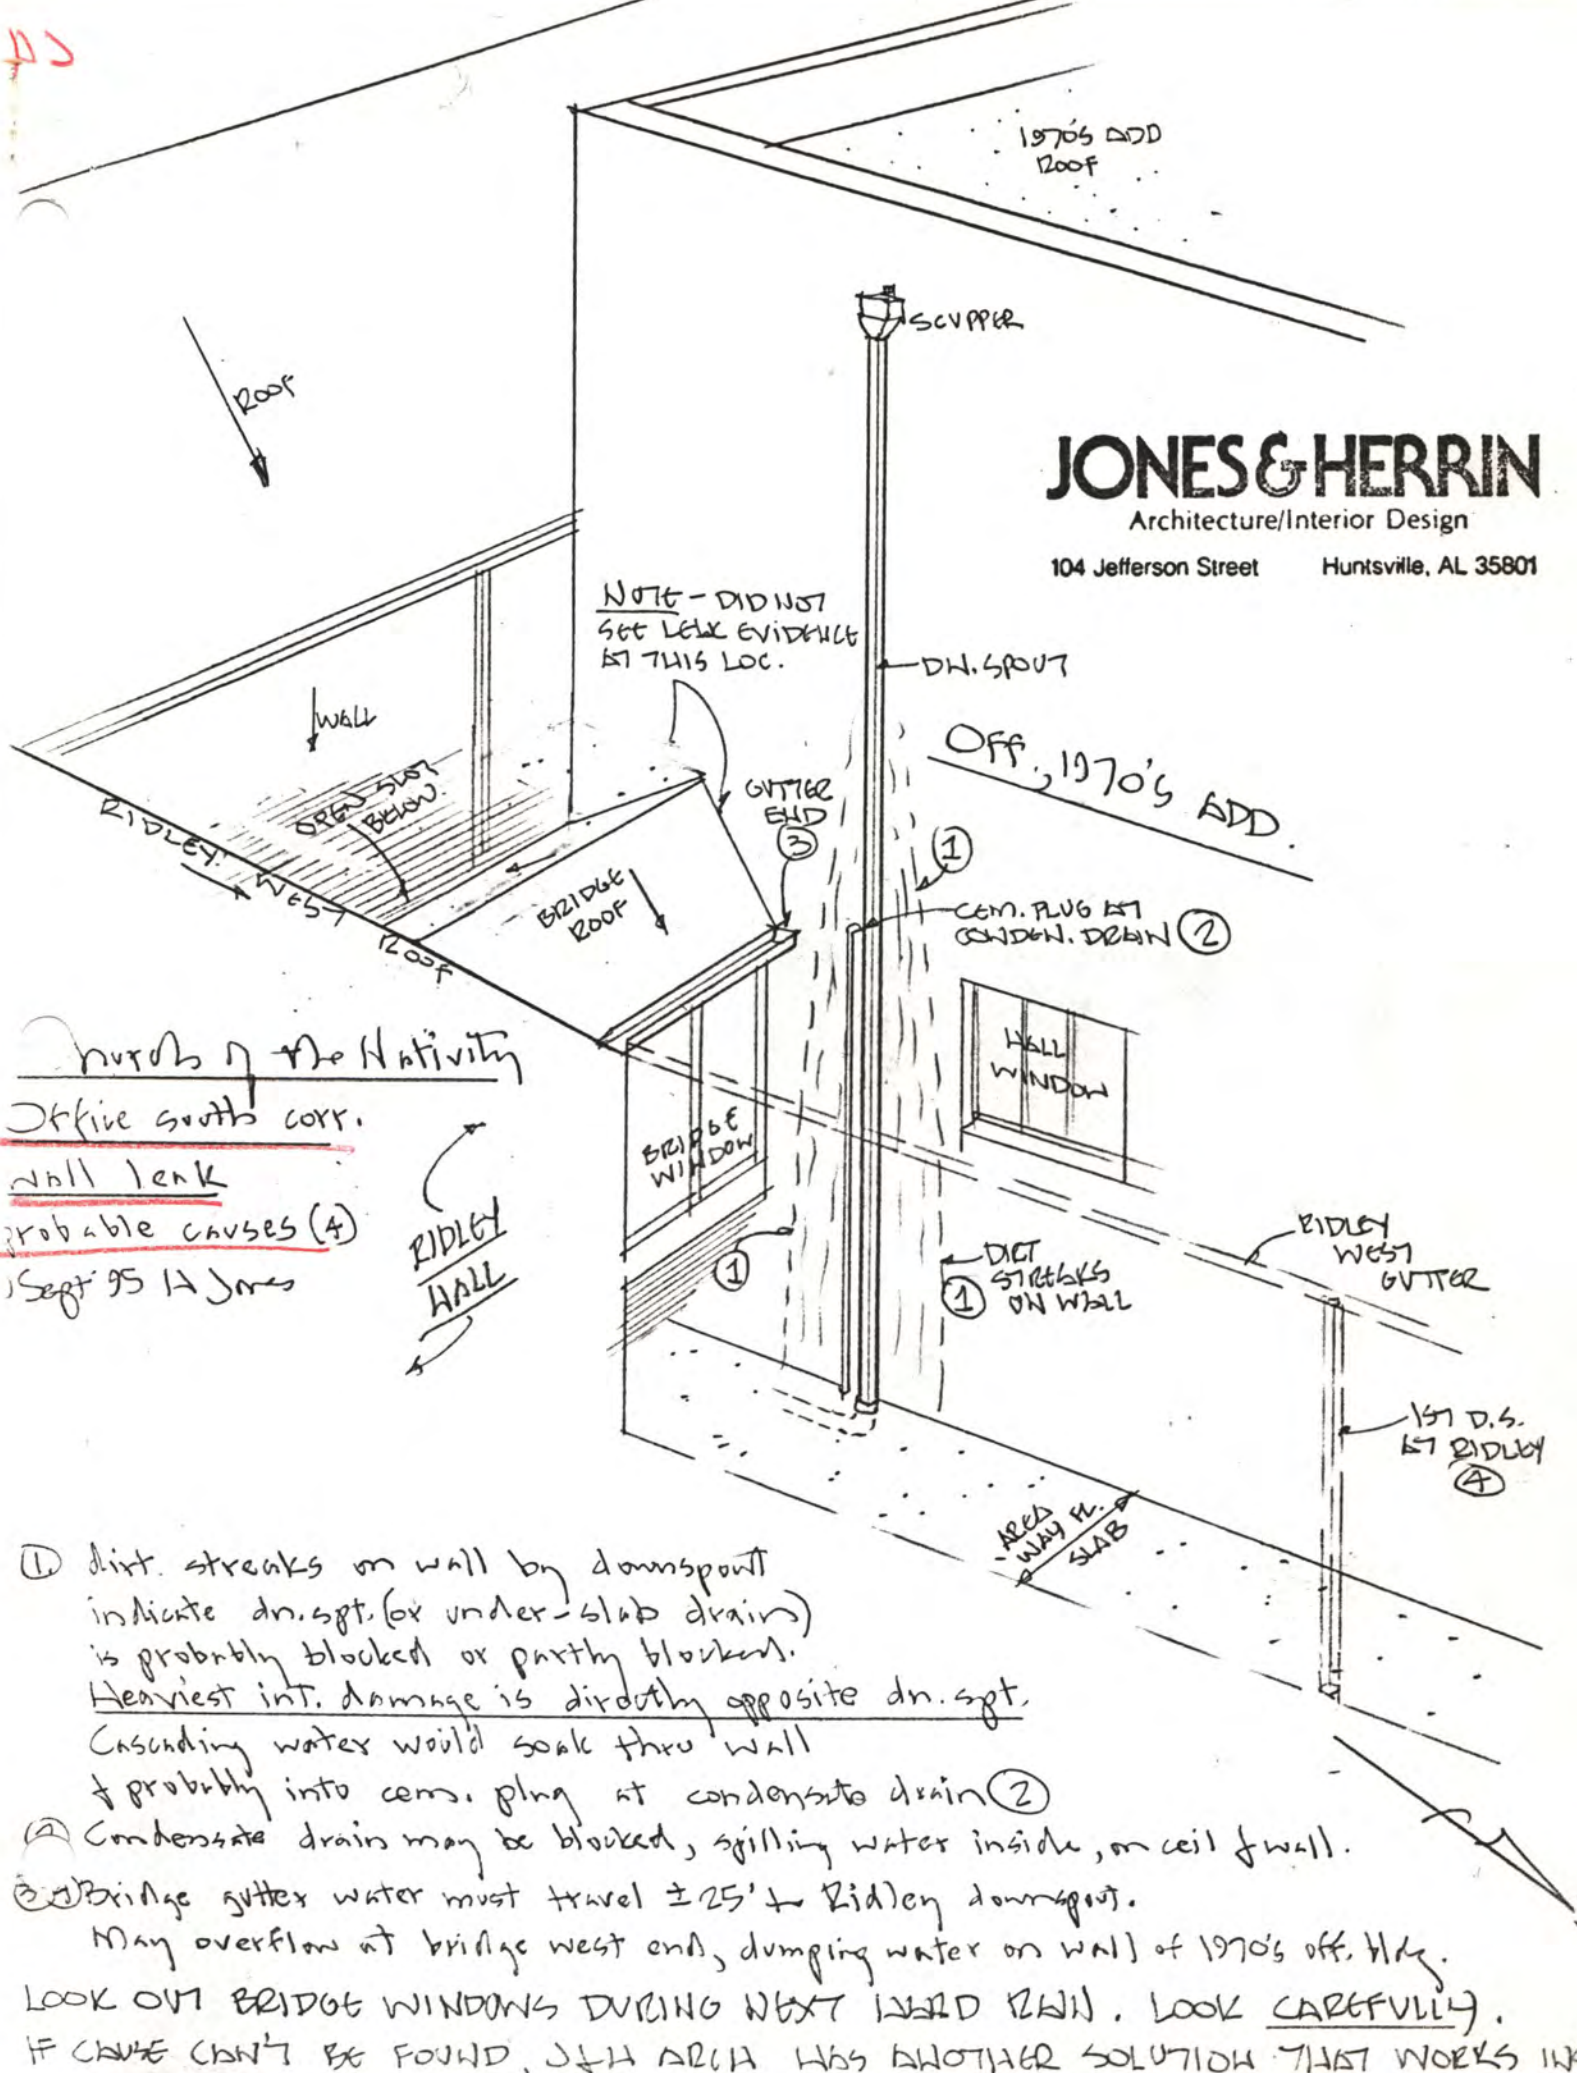 1970'S ADD
ROOF
SCUPPER
ROOF
JONES & HERRIN
Architecture/Interior Design
104 Jefferson Street Huntsville, AL 35801
NOTE - DID NOT
SEE LEAK EVIDENCE
AT THIS LOC.
DN. SPOUT
WALL
OFF., 1970'S ADD.
OPEN SLOT
BELOW
GUTTER
END
3
1
RIDLEY WEST ROOF
BRIDGE
ROOF
CEM. PLUG AT
CONDEN. DRAIN 2
HALL
WINDOW
hurch of the Nativity
Office south corr.
wall leak
probable causes (4)
Sept 95 H Jones
BRIDGE
WINDOW
RIDLEY
HALL
1
DIRT
STREAKS
1 ON WALL
RIDLEY
WEST
GUTTER
1ST D.S.
AT RIDLEY
4
AREA
WAY FL.
SLAB
1 dirt. streaks on wall by downspout
indicate dn. spt. (or under-slab drain)
is probably blocked or partly blocked.
Heaviest int. damage is directly opposite dn. spt.
Cascading water would soak thru wall
& probably into cem. plug at condensate drain 2
2 Condensate drain may be blocked, spilling water inside, on ceil & wall.
3 4 Bridge gutter water must travel ± 25' to Ridley downspout.
May overflow at bridge west end, dumping water on wall of 1970's off. bldg.
LOOK OUT BRIDGE WINDOWS DURING NEXT HARD RAIN. LOOK CAREFULLY.
IF CAUSE CAN'T BE FOUND, J&H ARCH HAS ANOTHER SOLUTION THAT WORKS